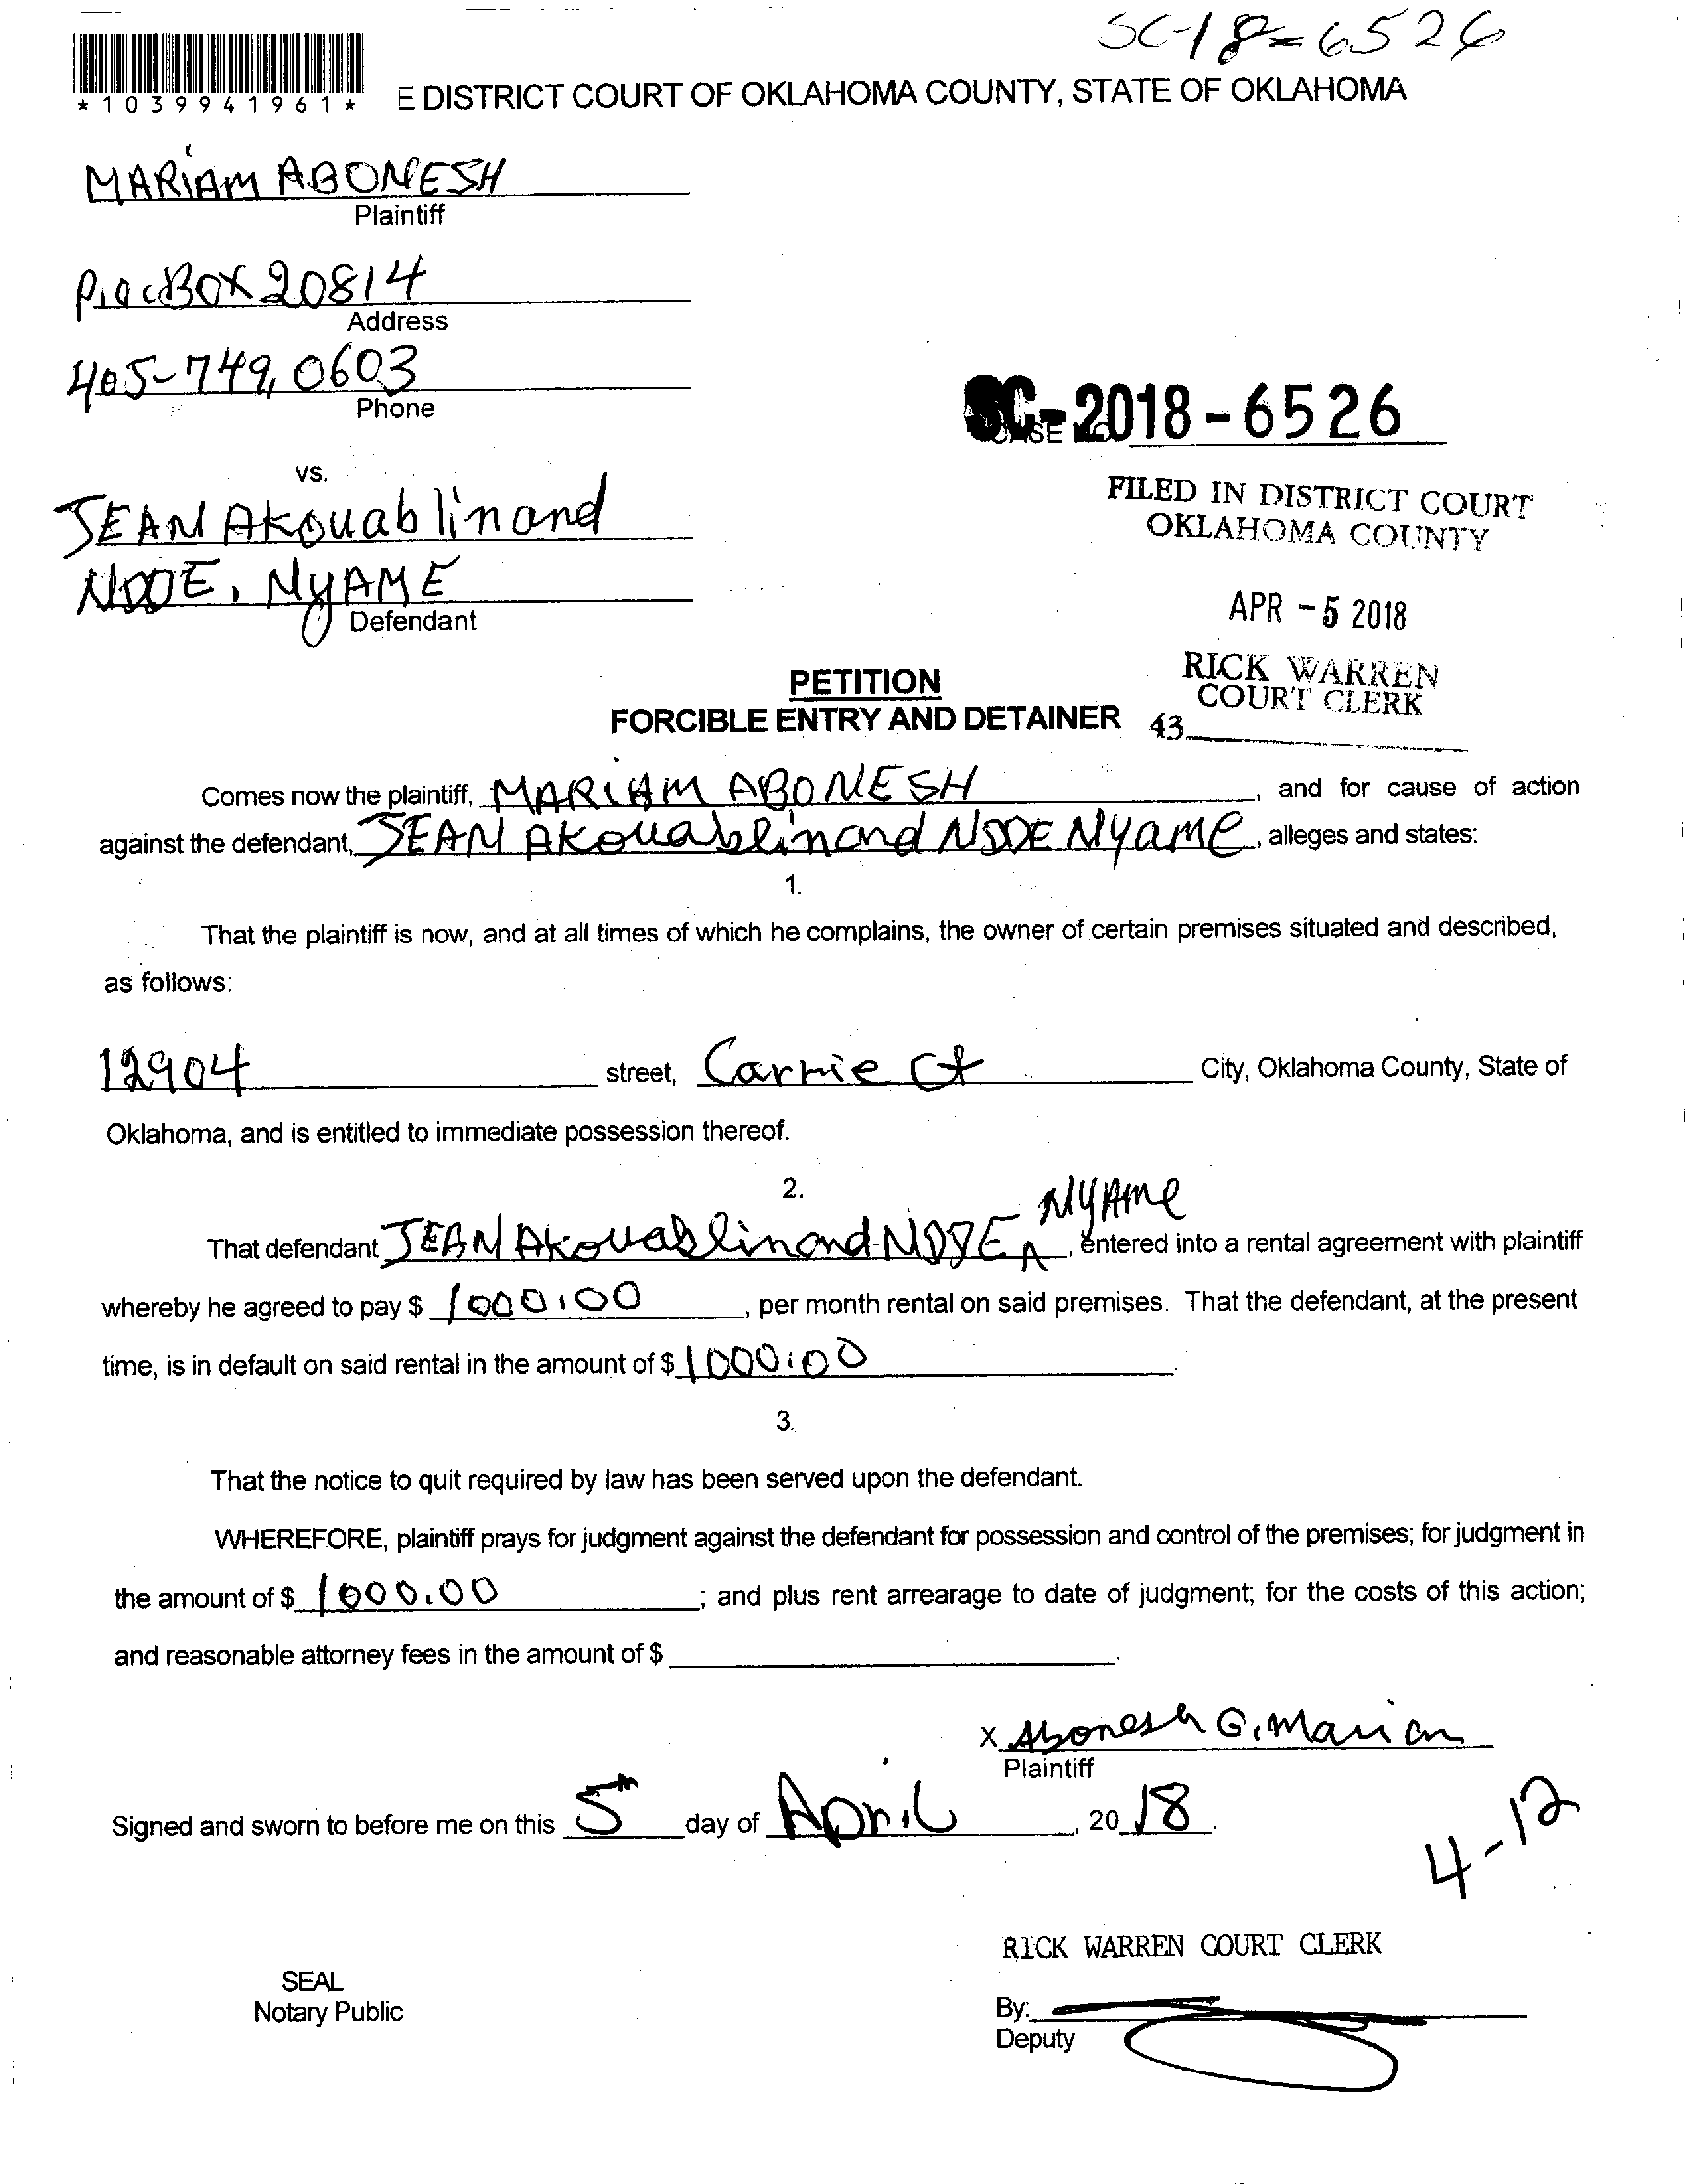 SC-18-6526
*1039941961*
E DISTRICT COURT OF OKLAHOMA COUNTY, STATE OF OKLAHOMA
MARIAM ABONESH
Plaintiff
P.O. BOX 20814
Address
405-749, 0603
Phone
SC-2018-6526
vs.
JEAN AKouablinand
NDDE, NYAME
Defendant
FILED IN DISTRICT COURT
OKLAHOMA COUNTY
APR -5 2018
RICK WARREN
COURT CLERK
43
PETITION
FORCIBLE ENTRY AND DETAINER
Comes now the plaintiff, MARIAM ABONESH, and for cause of action
against the defendant, JEAN AKouablinand NDDE NyAME, alleges and states:
1.
That the plaintiff is now, and at all times of which he complains, the owner of certain premises situated and described,
as follows:
12904 street, Carrie Ct City, Oklahoma County, State of
Oklahoma, and is entitled to immediate possession thereof.
2.
That defendant JEAN AKouablinand NDDE NyAme, entered into a rental agreement with plaintiff
whereby he agreed to pay $ 1000.00, per month rental on said premises. That the defendant, at the present
time, is in default on said rental in the amount of $ 1000.00.
3.
That the notice to quit required by law has been served upon the defendant.
WHEREFORE, plaintiff prays for judgment against the defendant for possession and control of the premises; for judgment in
the amount of $ 1000.00; and plus rent arrearage to date of judgment; for the costs of this action;
and reasonable attorney fees in the amount of $
X Abonesh G. Mariam
Plaintiff
Signed and sworn to before me on this 5th day of April, 2018.
4-12
RICK WARREN COURT CLERK
SEAL
Notary Public
By:
Deputy